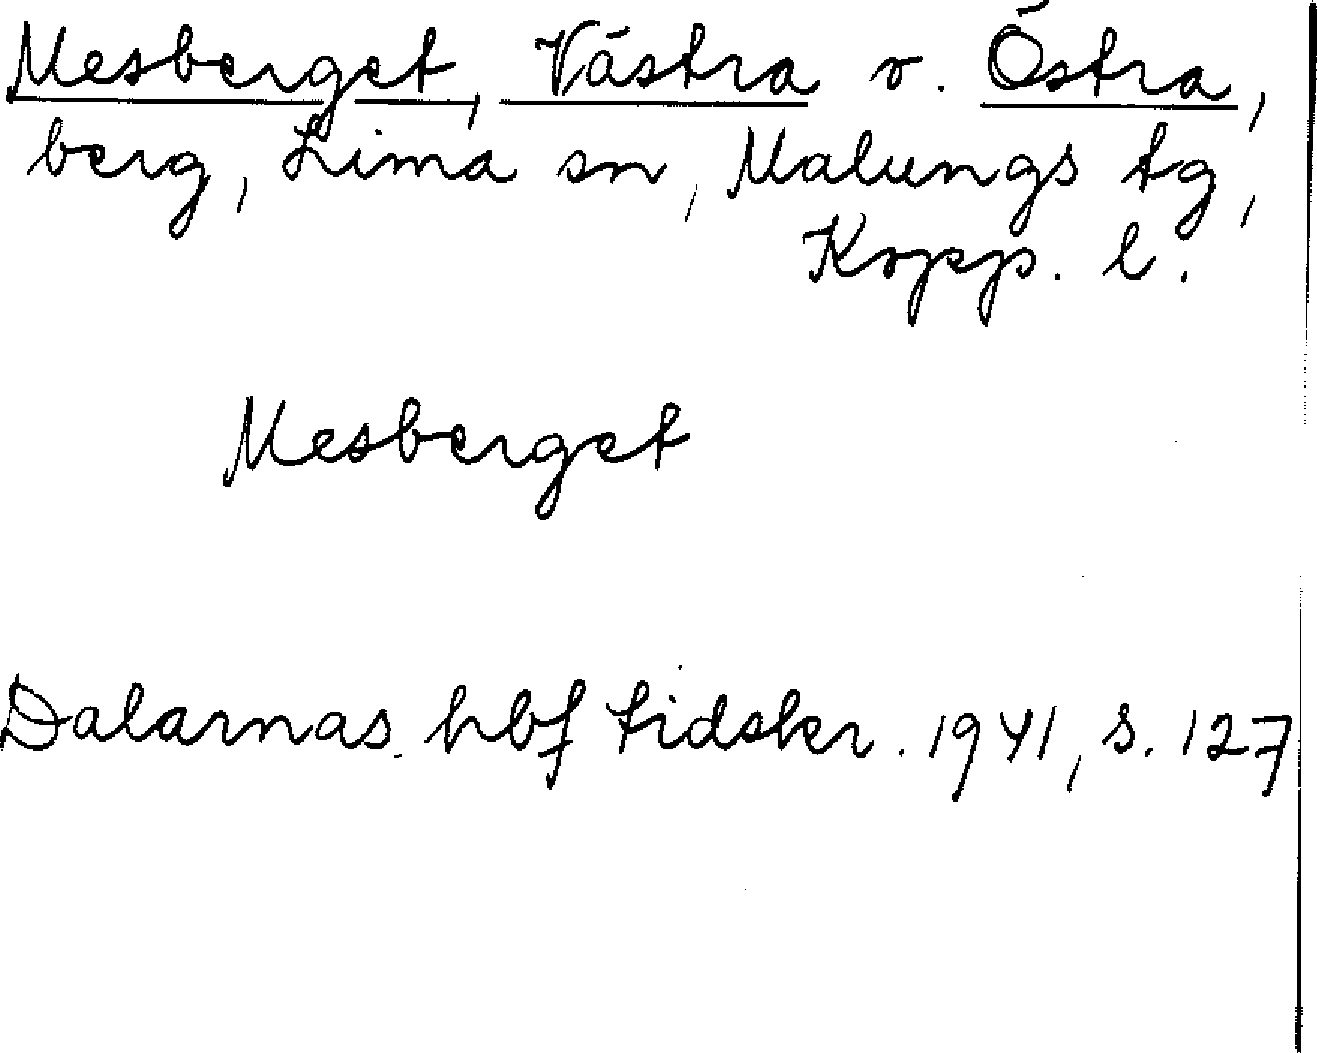 Mesberget, Västra o. Östra,
berg, Lima sn, Malungs tg,
Kopp. l.
Mesberget
Dalarnas hbf tidskr. 1941, s. 127